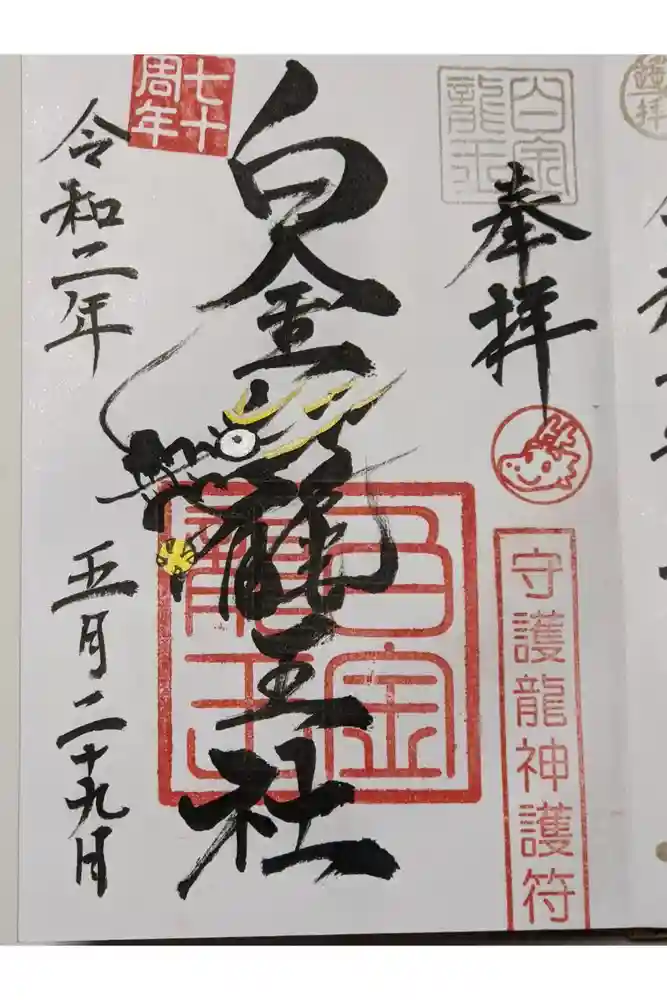 白金
龍王
奉拝
守護龍神護符
白金龍王社
白金
龍王
七十
周年
令和二年
五月二十九日